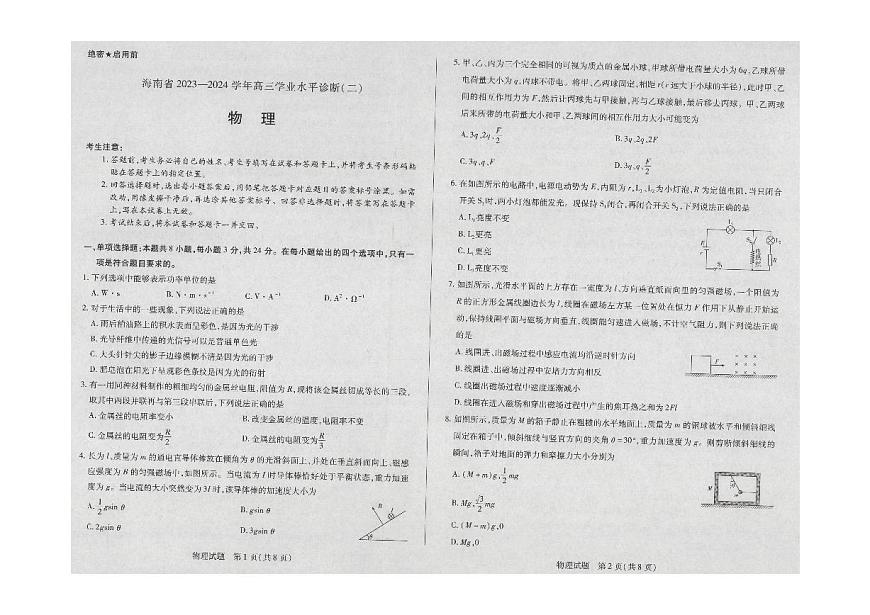 绝密★启用前
海南省 2023—2024 学年高三学业水平诊断(二)
物 理
考生注意:
1. 答题前,考生务必将自己的姓名、考生号填写在试卷和答题卡上,并将考生号条形码粘
贴在答题卡上的指定位置。
2. 回答选择题时,选出每小题答案后,用铅笔把答题卡对应题目的答案标号涂黑。如需
改动,用橡皮擦干净后,再选涂其他答案标号。回答非选择题时,将答案写在答题卡
上,写在本试卷上无效。
3. 考试结束后,将本试卷和答题卡一并交回。
一、单项选择题:本题共 8 小题,每小题 3 分,共 24 分。在每小题给出的四个选项中,只有一
项是符合题目要求的。
1. 下列选项中能够表示功率单位的是
A. W·s B. N·m·s⁻¹ C. V·A⁻¹ D. A²·Ω⁻¹
2. 对于生活中的一些现象,下列说法正确的是
A. 雨后柏油路上的积水表面呈彩色,是因为光的干涉
B. 光导纤维中传递的光信号可以是普通单色光
C. 大头针针尖的影子边缘模糊不清是因为光的干涉
D. 肥皂泡在阳光下呈现彩色条纹是因为光的衍射
3. 有一用同种材料制作的粗细均匀的金属丝电阻,阻值为 R,现将该金属丝切成等长的三段,
取其中两段并联再与第三段串联后,下列说法正确的是
A. 金属丝的电阻率变小 B. 改变金属丝的温度,电阻率不变
C. 金属丝的电阻变为 R/2 D. 金属丝的电阻变为 R/3
4. 长为 l,质量为 m 的通电直导体棒放在倾角为 θ 的光滑斜面上,并处在垂直斜面向上、磁感
应强度为 B 的匀强磁场中,如图所示。当电流为 I 时导体棒恰好处于平衡状态,重力加速
度为 g。当电流的大小突然变为 3I 时,该导体棒的加速度大小为
A. 1/2 gsin θ B. gsin θ
C. 2gsin θ D. 3gsin θ
B
θ
物理试题 第 1 页(共 8 页)
5. 甲、乙、丙为三个完全相同的可视为质点的金属小球,甲球所带电荷量大小为 6q,乙球所带
电荷量大小为 q,丙球不带电。将甲、乙两球固定,相距 r(r 远大于小球的半径),此时甲、乙
间的相互作用力为 F,然后让丙球先与甲接触,再与乙球接触,最后移去丙球。甲、乙两球
后来所带的电荷量大小和甲、乙两球间的相互作用力大小可能变为
A. 3q,2q,F/2 B. 3q,2q,2F
C. 3q,q,F D. 3q,q,F/2
6. 在如图所示的电路中,电源电动势为 E,内阻为 r,L₁、L₂为小灯泡,R 为定值电阻,当只闭合
开关 S₁时,两小灯泡都能发光。现保持 S₁闭合,再闭合开关 S₂,下列说法正确的是
A. L₂亮度不变
B. L₂更亮
C. L₁更亮
D. L₁亮度不变
L₁
S₂
L₂
E
r
R
S₁
7. 如图所示,光滑水平面的上方存在一宽度为 l、方向垂直纸面向里的匀强磁场,一个阻值为
R 的正方形金属线圈边长为 l,线圈在磁场左方某一位置处在恒力 F 作用下从静止开始运
动,保持线圈平面与磁场方向垂直,线圈能匀速进入磁场,不计空气阻力,则下列说法正确
的是
A. 线圈进、出磁场过程中感应电流均沿逆时针方向
B. 线圈进、出磁场过程中安培力方向相反
C. 线圈出磁场过程中速度逐渐减小
D. 线圈在进入磁场和穿出磁场过程中产生的焦耳热之和为 2Fl
F
8. 如图所示,质量为 M 的箱子静止在粗糙的水平地面上,质量为 m 的钢球被水平和倾斜细线
固定在箱子中,倾斜细线与竖直方向的夹角 θ=30°,重力加速度为 g。则剪断倾斜细线的
瞬间,箱子对地面的弹力和摩擦力大小分别为
A. (M+m)g,1/2 mg
B. Mg,√3/2 mg
C. (M-m)g,0
D. Mg,0
M
m
物理试题 第 2 页(共 8 页)